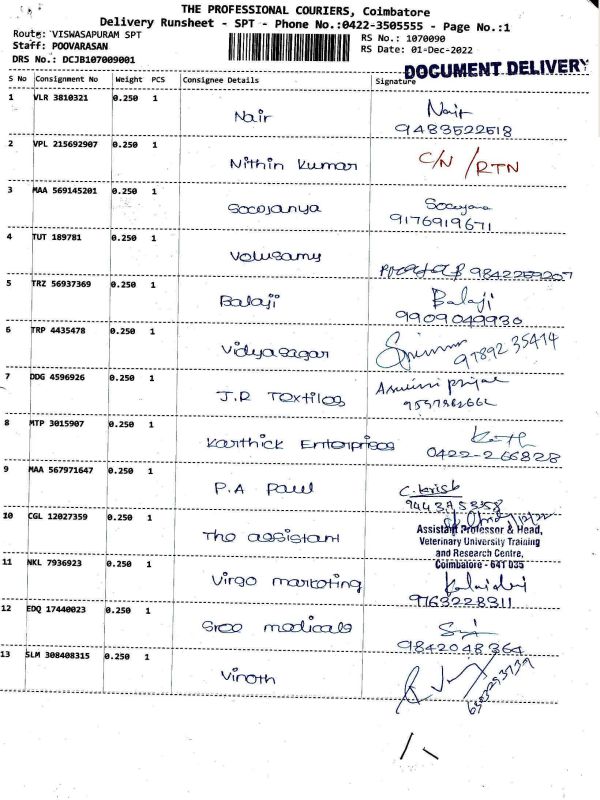 THE PROFESSIONAL COURIERS, Coimbatore
Delivery Runsheet - SPT - Phone No.:0422-3505555 - Page No.:1
Route: VISWASAPURAM SPT
RS No.: 1070090
Staff: POOVARASAN
RS Date: 01-Dec-2022
DRS No.: DCJB107009001
DOCUMENT DELIVERY
S No Consignment No Weight PCS Consignee Details Signature
1 VLR 3810321 0.250 1
Nair Nair
9483522518
2 VPL 215692907 0.250 1
Nithin Kumar C/N / RTN
3 MAA 569145201 0.250 1
Socojanya
9176919671
4 TUT 189781 0.250 1
Velusamy
9842259207
5 TRZ 56937369 0.250 1
Balaji Balaji
9909049930
6 TRP 4435478 0.250 1
Vidyasagar
97892 35414
7 DDG 4596926 0.250 1
J.R Textiles
8 MTP 3015907 0.250 1
Karthick Enterprises
0422-266828
9 MAA 567971647 0.250 1
P.A Paul C. Krish
10 CGL 12027359 0.250 1
The assistant
Assistant Professor & Head,
Veterinary University Training
and Research Centre,
Coimbatore - 641 035
11 NKL 7936923 0.250 1
Virgo marketing
9763228311
12 EDQ 17440023 0.250 1
Sree medicals
9842048364
13 SLM 308408315 0.250 1
Vinoth